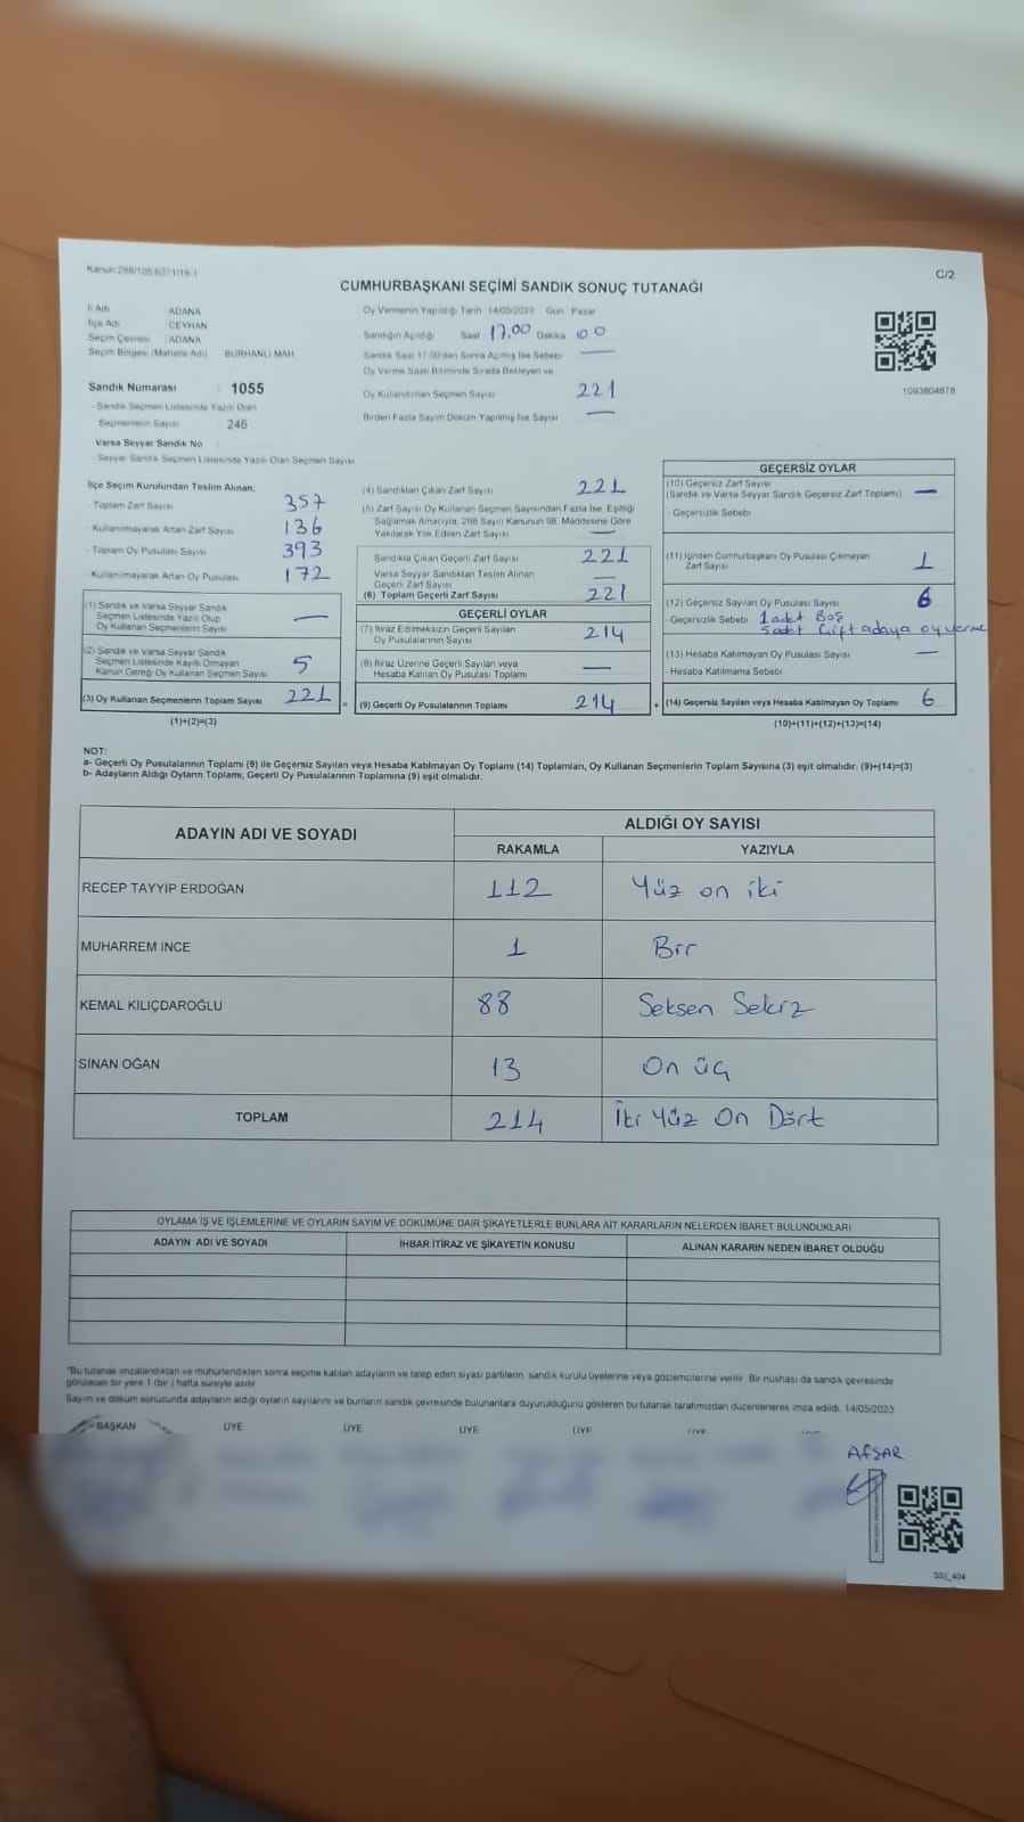 Kanun:298/105 6271/19-1
C/2
CUMHURBAŞKANI SEÇİMİ SANDIK SONUÇ TUTANAĞI
İl Adı ADANA
İlçe Adı CEYHAN
Seçim Çevresi ADANA
Seçim Bölgesi (Mahalle Adı) BURHANLI MAH
Sandık Numarası : 1055
- Sandık Seçmen Listesinde Yazılı Olan
Seçmenlerin Sayısı 246
Varsa Seyyar Sandık No
- Seyyar Sandık Seçmen Listesinde Yazılı Olan Seçmen Sayısı
Oy Vermenin Yapıldığı Tarih 14/05/2023 Gün Pazar
Sandığın Açıldığı Saat 17.00 Dakika 00
Sandık Saat 17.00'den Sonra Açılmış İse Sebebi —
Oy Verme Saati Bitiminde Sırada Bekleyen ve
Oy Kullandırılan Seçmen Sayısı 221
Birden Fazla Sayım Döküm Yapılmış İse Sayısı —
1093804878
İlçe Seçim Kurulundan Teslim Alınan;
- Toplam Zarf Sayısı 357
- Kullanılmayarak Artan Zarf Sayısı 136
- Toplam Oy Pusulası Sayısı 393
- Kullanılmayarak Artan Oy Pusulası 172
(1) Sandık ve Varsa Seyyar Sandık
Seçmen Listesinde Yazılı Olup
Oy Kullanan Seçmenlerin Sayısı —
(2) Sandık ve Varsa Seyyar Sandık
Seçmen Listesinde Kayıtlı Olmayan
Kanun Gereği Oy Kullanan Seçmen Sayısı 5
(3) Oy Kullanan Seçmenlerin Toplam Sayısı 221
(1)+(2)=(3)
(4) Sandıktan Çıkan Zarf Sayısı 221
(5) Zarf Sayısı Oy Kullanan Seçmen Sayısından Fazla İse, Eşitliği
Sağlamak Amacıyla, 298 Sayılı Kanunun 98. Maddesine Göre
Yakılarak Yok Edilen Zarf Sayısı —
Sandıkta Çıkan Geçerli Zarf Sayısı 221
Varsa Seyyar Sandıktan Teslim Alınan
Geçerli Zarf Sayısı —
(6) Toplam Geçerli Zarf Sayısı 221
GEÇERLİ OYLAR
(7) İtiraz Edilmeksizin Geçerli Sayılan
Oy Pusulalarının Sayısı 214
(8) İtiraz Üzerine Geçerli Sayılan veya
Hesaba Katılan Oy Pusulası Toplamı —
= (9) Geçerli Oy Pusulalarının Toplamı 214
GEÇERSİZ OYLAR
(10) Geçersiz Zarf Sayısı
(Sandık ve Varsa Seyyar Sandık Geçersiz Zarf Toplamı) —
- Geçersizlik Sebebi
(11) İçinden Cumhurbaşkanı Oy Pusulası Çıkmayan
Zarf Sayısı 1
(12) Geçersiz Sayılan Oy Pusulası Sayısı 6
- Geçersizlik Sebebi 1 adet Boş
5 adet Çift adaya oy verme
(13) Hesaba Katılmayan Oy Pusulası Sayısı —
- Hesaba Katılmama Sebebi
+ (14) Geçersiz Sayılan veya Hesaba Katılmayan Oy Toplamı 6
(10)+(11)+(12)+(13)=(14)
NOT:
a- Geçerli Oy Pusulalarının Toplamı (9) ile Geçersiz Sayılan veya Hesaba Katılmayan Oy Toplamı (14) Toplamları, Oy Kullanan Seçmenlerin Toplam Sayısına (3) eşit olmalıdır. (9)+(14)=(3)
b- Adayların Aldığı Oyların Toplamı, Geçerli Oy Pusulalarının Toplamına (9) eşit olmalıdır.
ADAYIN ADI VE SOYADI ALDIĞI OY SAYISI
RAKAMLA YAZIYLA
RECEP TAYYIP ERDOĞAN 112 Yüz on iki
MUHARREM İNCE 1 Bir
KEMAL KILIÇDAROĞLU 88 Seksen Sekiz
SİNAN OĞAN 13 On üç
TOPLAM 214 İki Yüz On Dört
OYLAMA İŞ VE İŞLEMLERİNE VE OYLARIN SAYIM VE DÖKÜMÜNE DAİR ŞİKAYETLERLE BUNLARA AİT KARARLARIN NELERDEN İBARET BULUNDUKLARI
ADAYIN ADI VE SOYADI İHBAR İTİRAZ VE ŞİKAYETİN KONUSU ALINAN KARARIN NEDEN İBARET OLDUĞU
"Bu tutanak imzalandıktan ve mühürlendikten sonra seçime katılan adayların ve talep eden siyasi partilerin sandık kurulu üyelerine veya gözlemcilerine verilir. Bir nüshası da sandık çevresinde
görülecek bir yere 1 (bir) hafta süreyle asılır
Sayım ve döküm sonucunda adayların aldığı oyların sayılarını ve bunların sandık çevresinde bulunanlara duyurulduğunu gösteren bu tutanak tarafımızdan düzenlenerek imza edildi. 14/05/2023
BAŞKAN ÜYE ÜYE ÜYE ÜYE ÜYE
AFŞAR